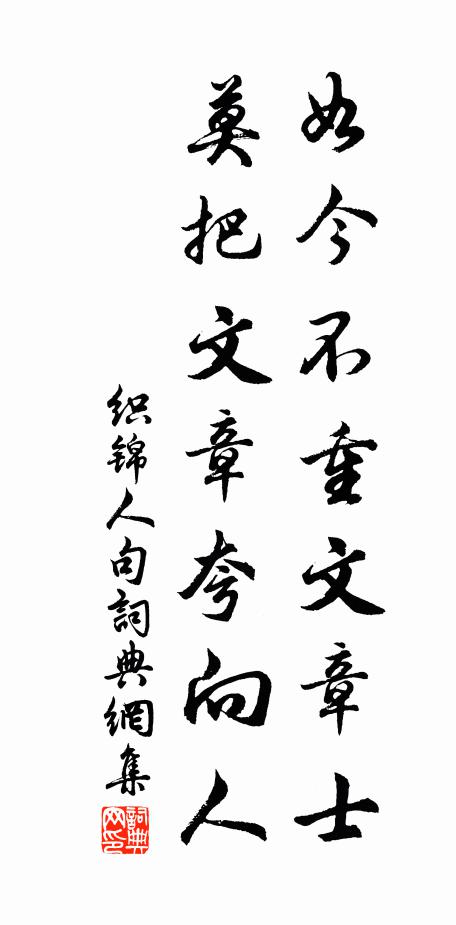 如今不重文章士
莫把文章夸向人
织锦人句詞典網集
詞典网印